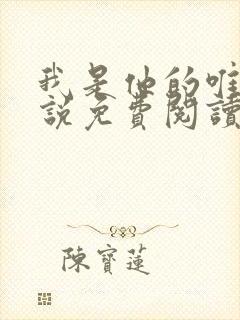 我是他的唯
說免費閱讀
陳寶蓮